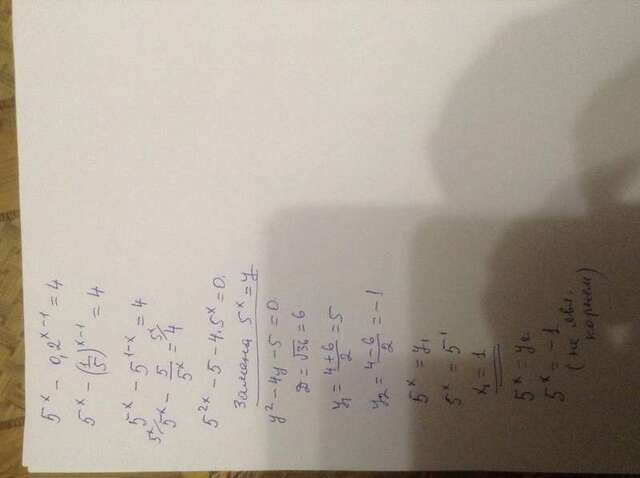 5^x - 0,2^(x-1) = 4
5^x - (1/5)^(x-1) = 4
5^x - 5^(1-x) = 4
5^x/ 5^x - 5/5^x = 4 5^x/
5^(2x) - 5 - 4·5^x = 0.
Замена 5^x = y
y² - 4y - 5 = 0
D = √36 = 6
y₁ = (4+6)/2 = 5
y₂ = (4-6)/2 = -1
5^x = y₁
5^x = 5¹
x₁ = 1
5^x = y₂
5^x = -1
(не явл.
корнем)